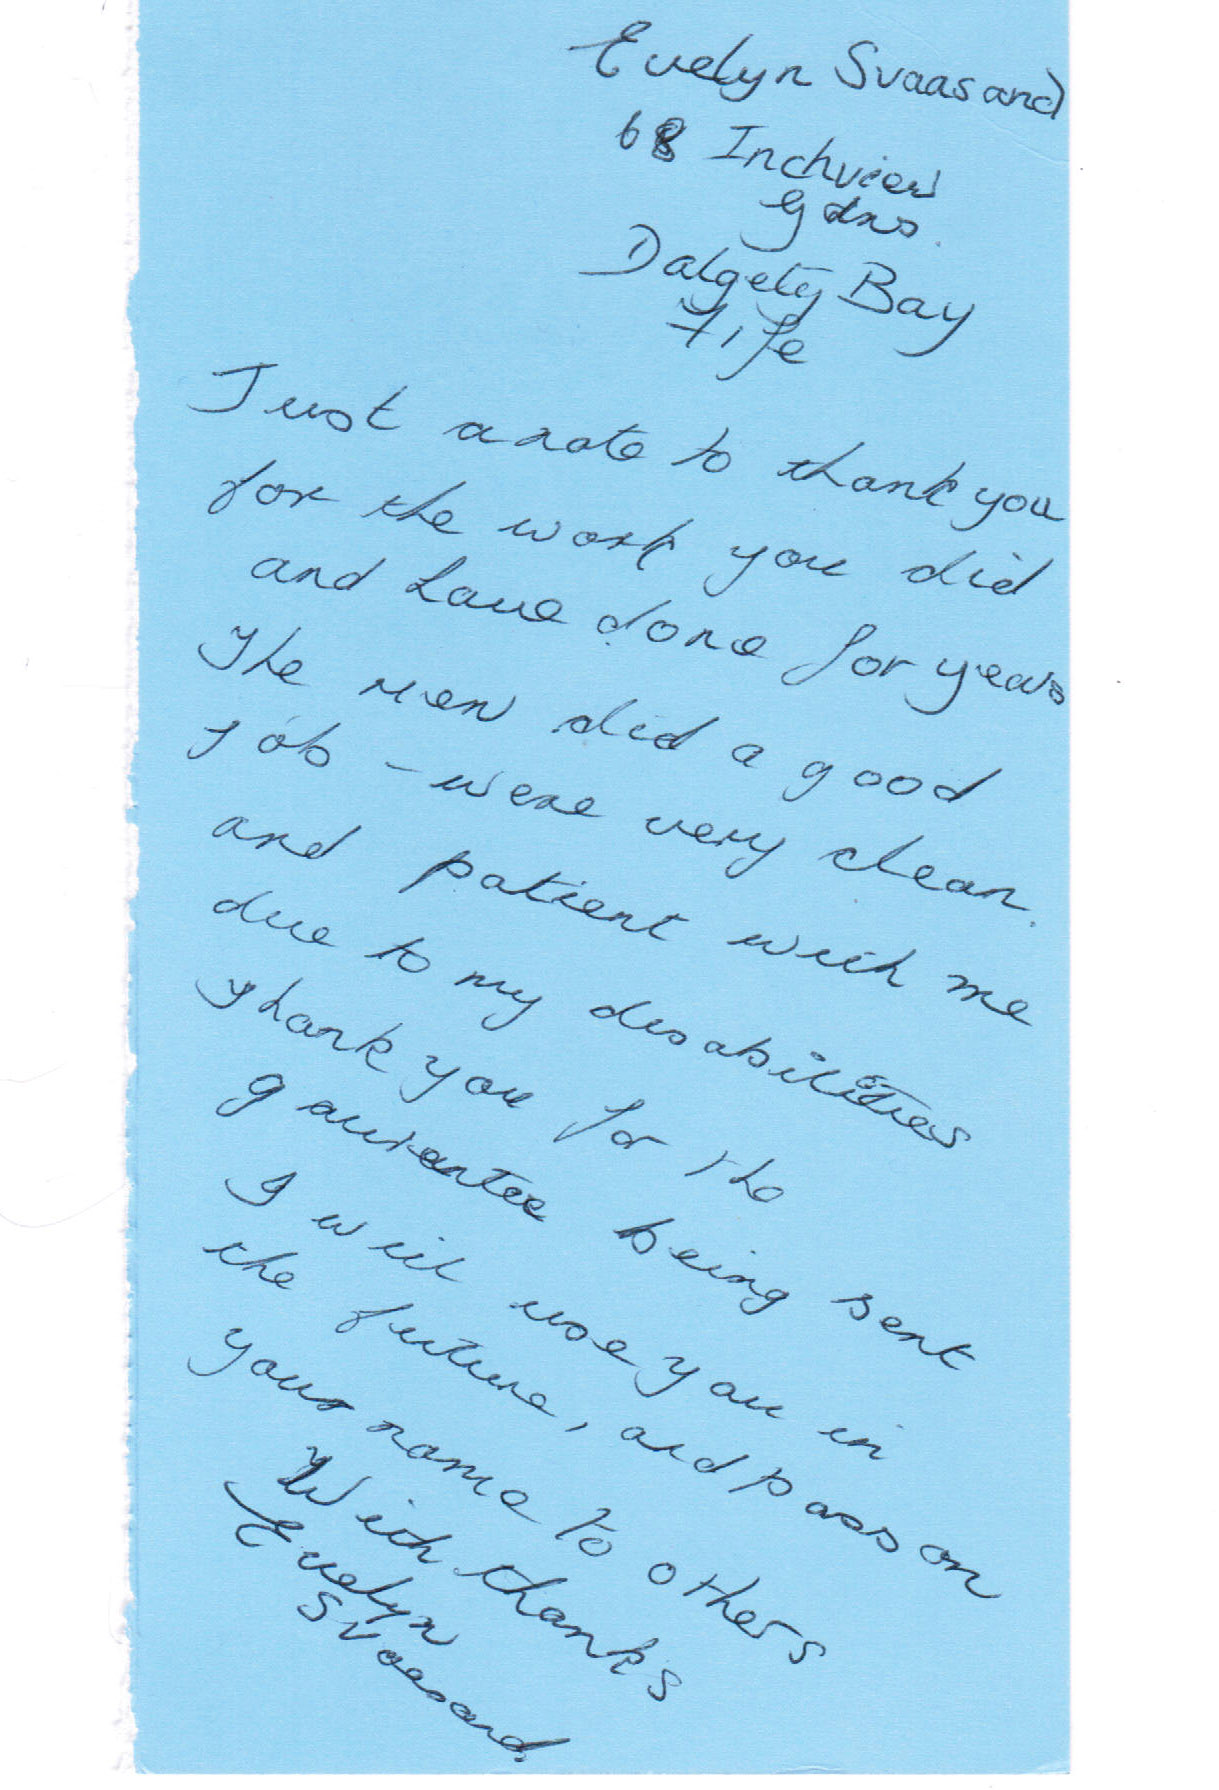 Evelyn Svaasand
68 Inchview
Gdns.
Dalgety Bay
Fife
Just a note to thank you
for the work you did
and have done for years
The men did a good
job - were very clean.
and patient with me
due to my disabilities
Thank you for the
gaurantee being sent
I will use you in
the future, and pass on
your name to others
With thanks
Evelyn
Svaasand